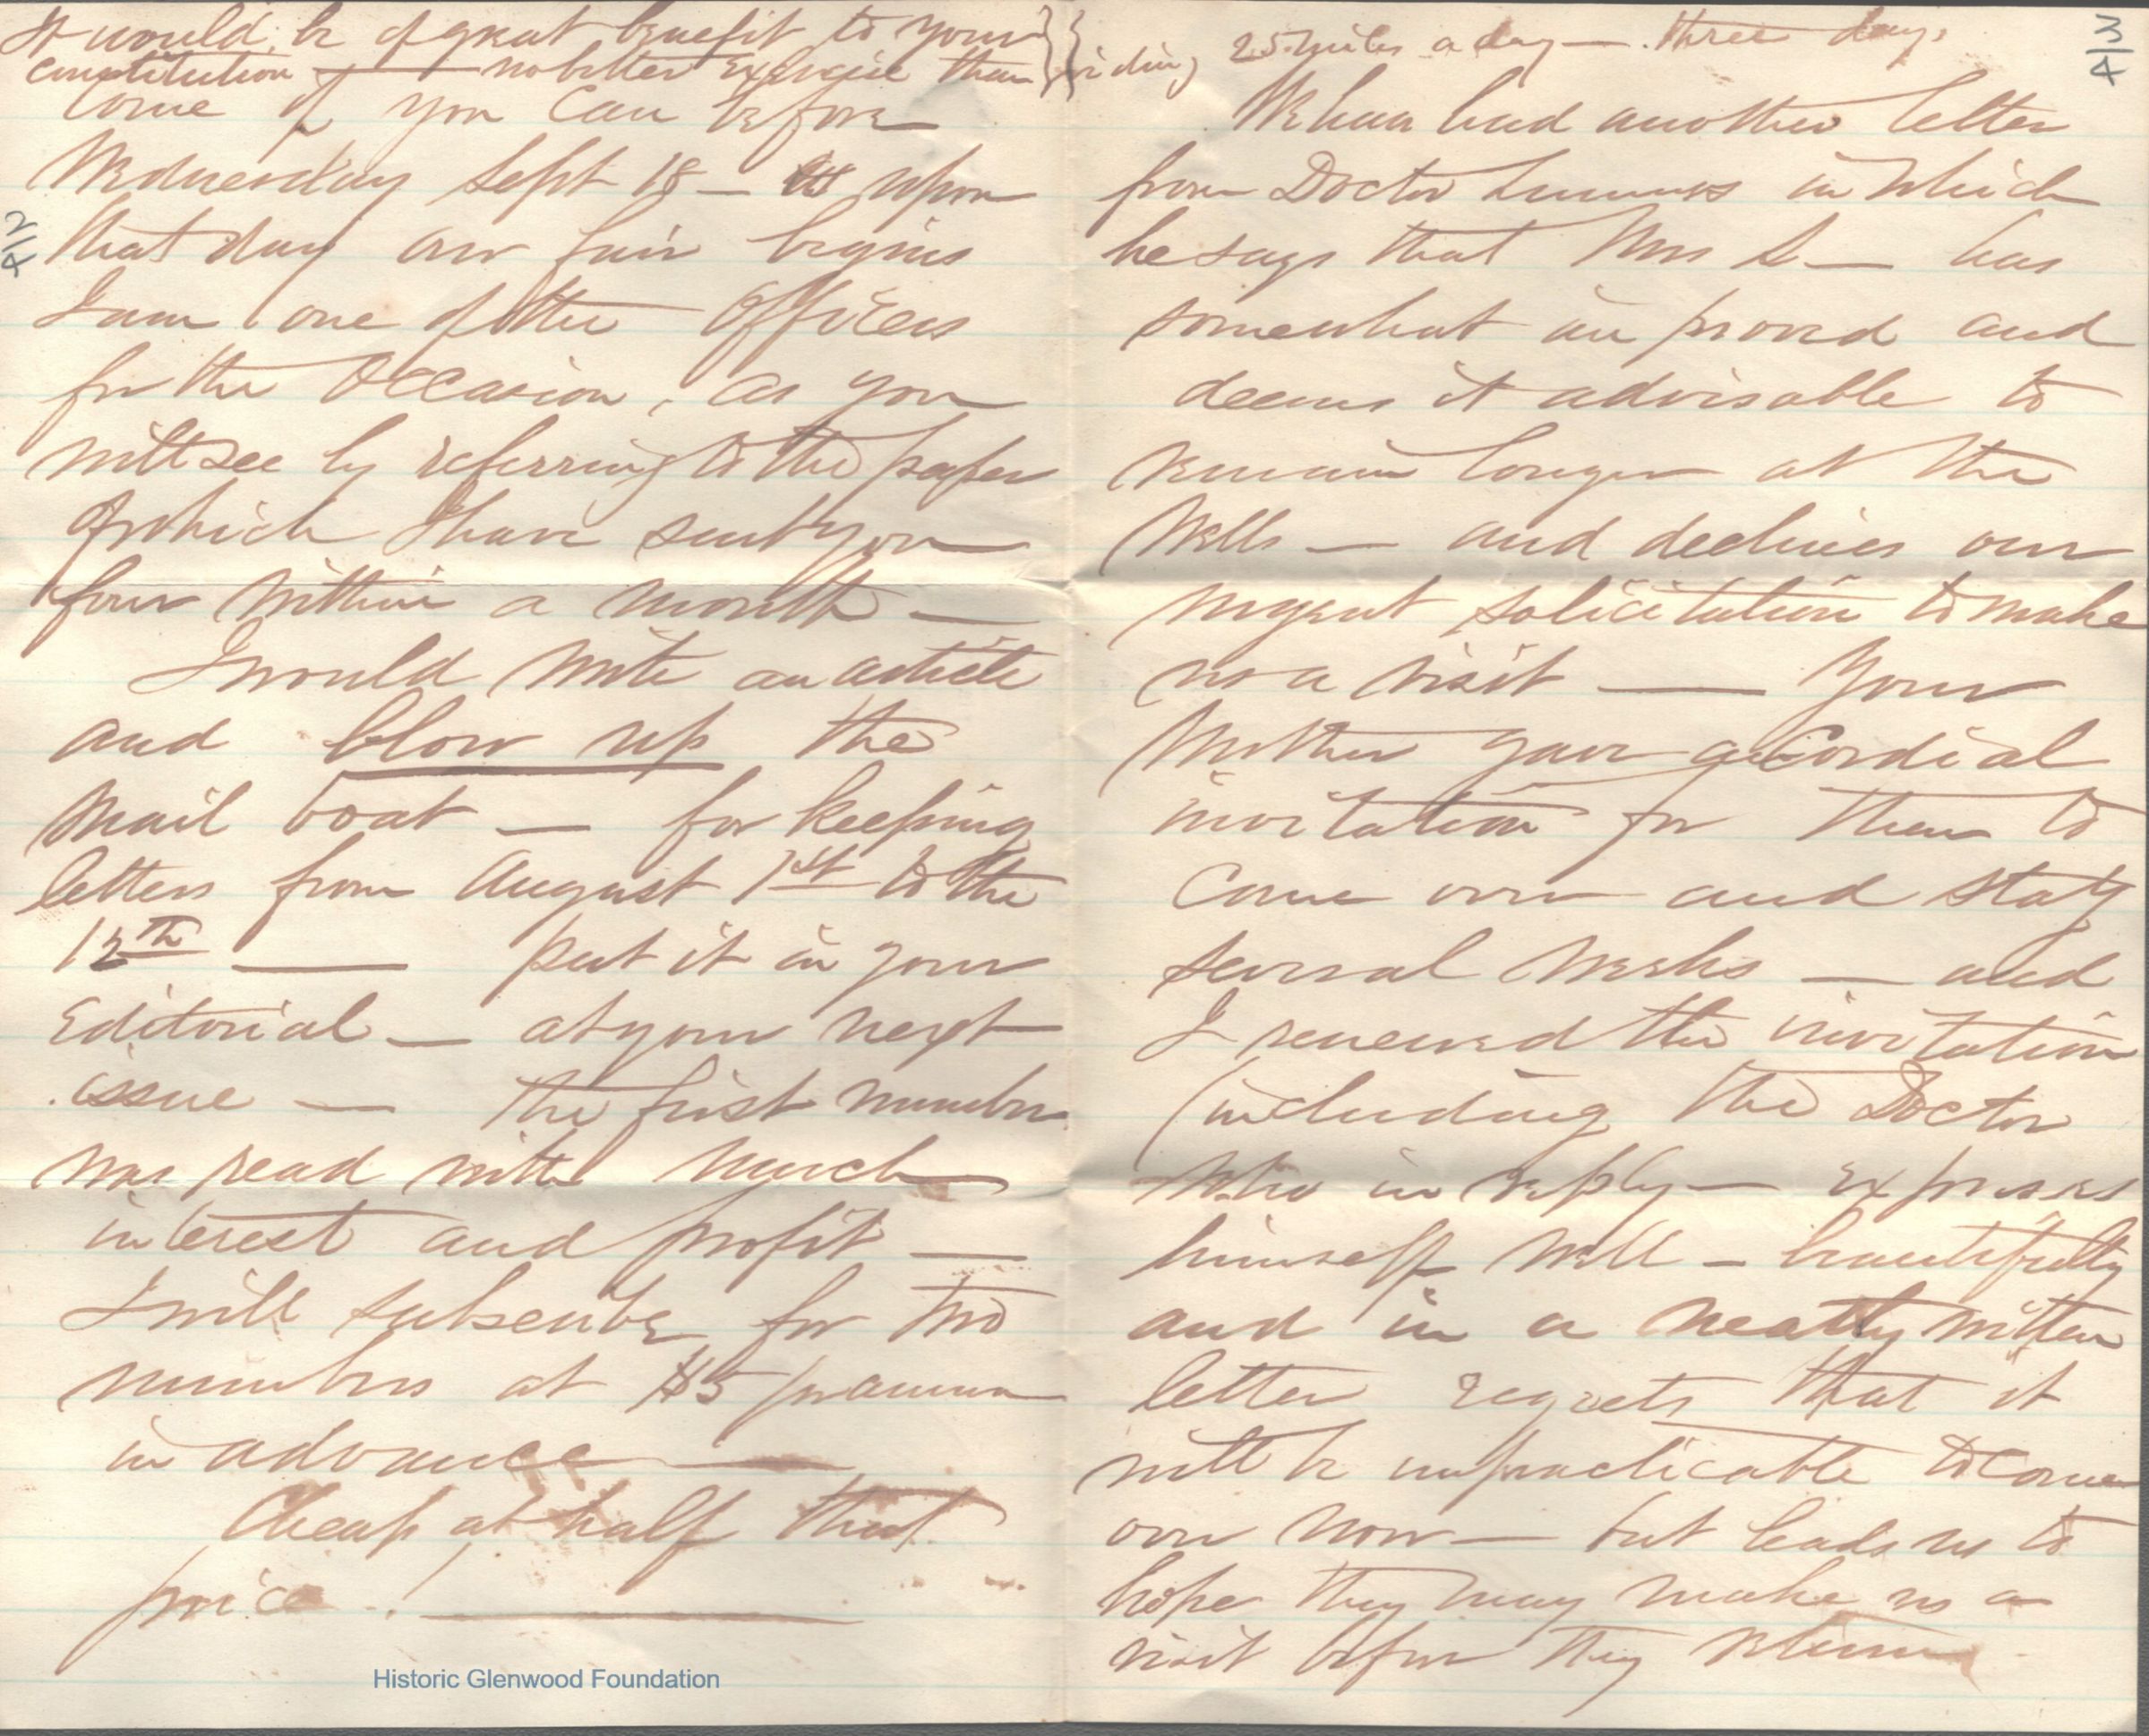 It would be of great benefit to your
constitution — no better exercise than
riding 25 miles a day — three days
4/2
come if you can before
Wednesday Sept 18 — upon
that day our fair begins
I am one of the officers
for the Occasion, as you
will see by referring to the paper
of which I have sent you
four within a month —
I would write an article
and blow up the
mail boat — for keeping
letters from August 1st to the
12th — put it in your
Editorial — at your next
issue — the first number
was read with much
interest and profit —
I will subscribe for two
numbers at $5 per annum
in advance —
Cheap at half that
price! —
Historic Glenwood Foundation
4/3
We have had another letter
from Doctor in which
he says that Mrs S — has
somewhat improved and
deems it advisable to
remain longer at the
Wells — and declines our
urgent solicitation to make
us a visit — Your
Mother gave a cordial
invitation for them to
come over and stay
several weeks — and
I renewed the invitation
(including the Doctor
who in reply — expresses
himself well — beautifully
and in a neatly written
letter regrets that it
will be impracticable to come
over now — but leads us to
hope they may make us a
visit before they return